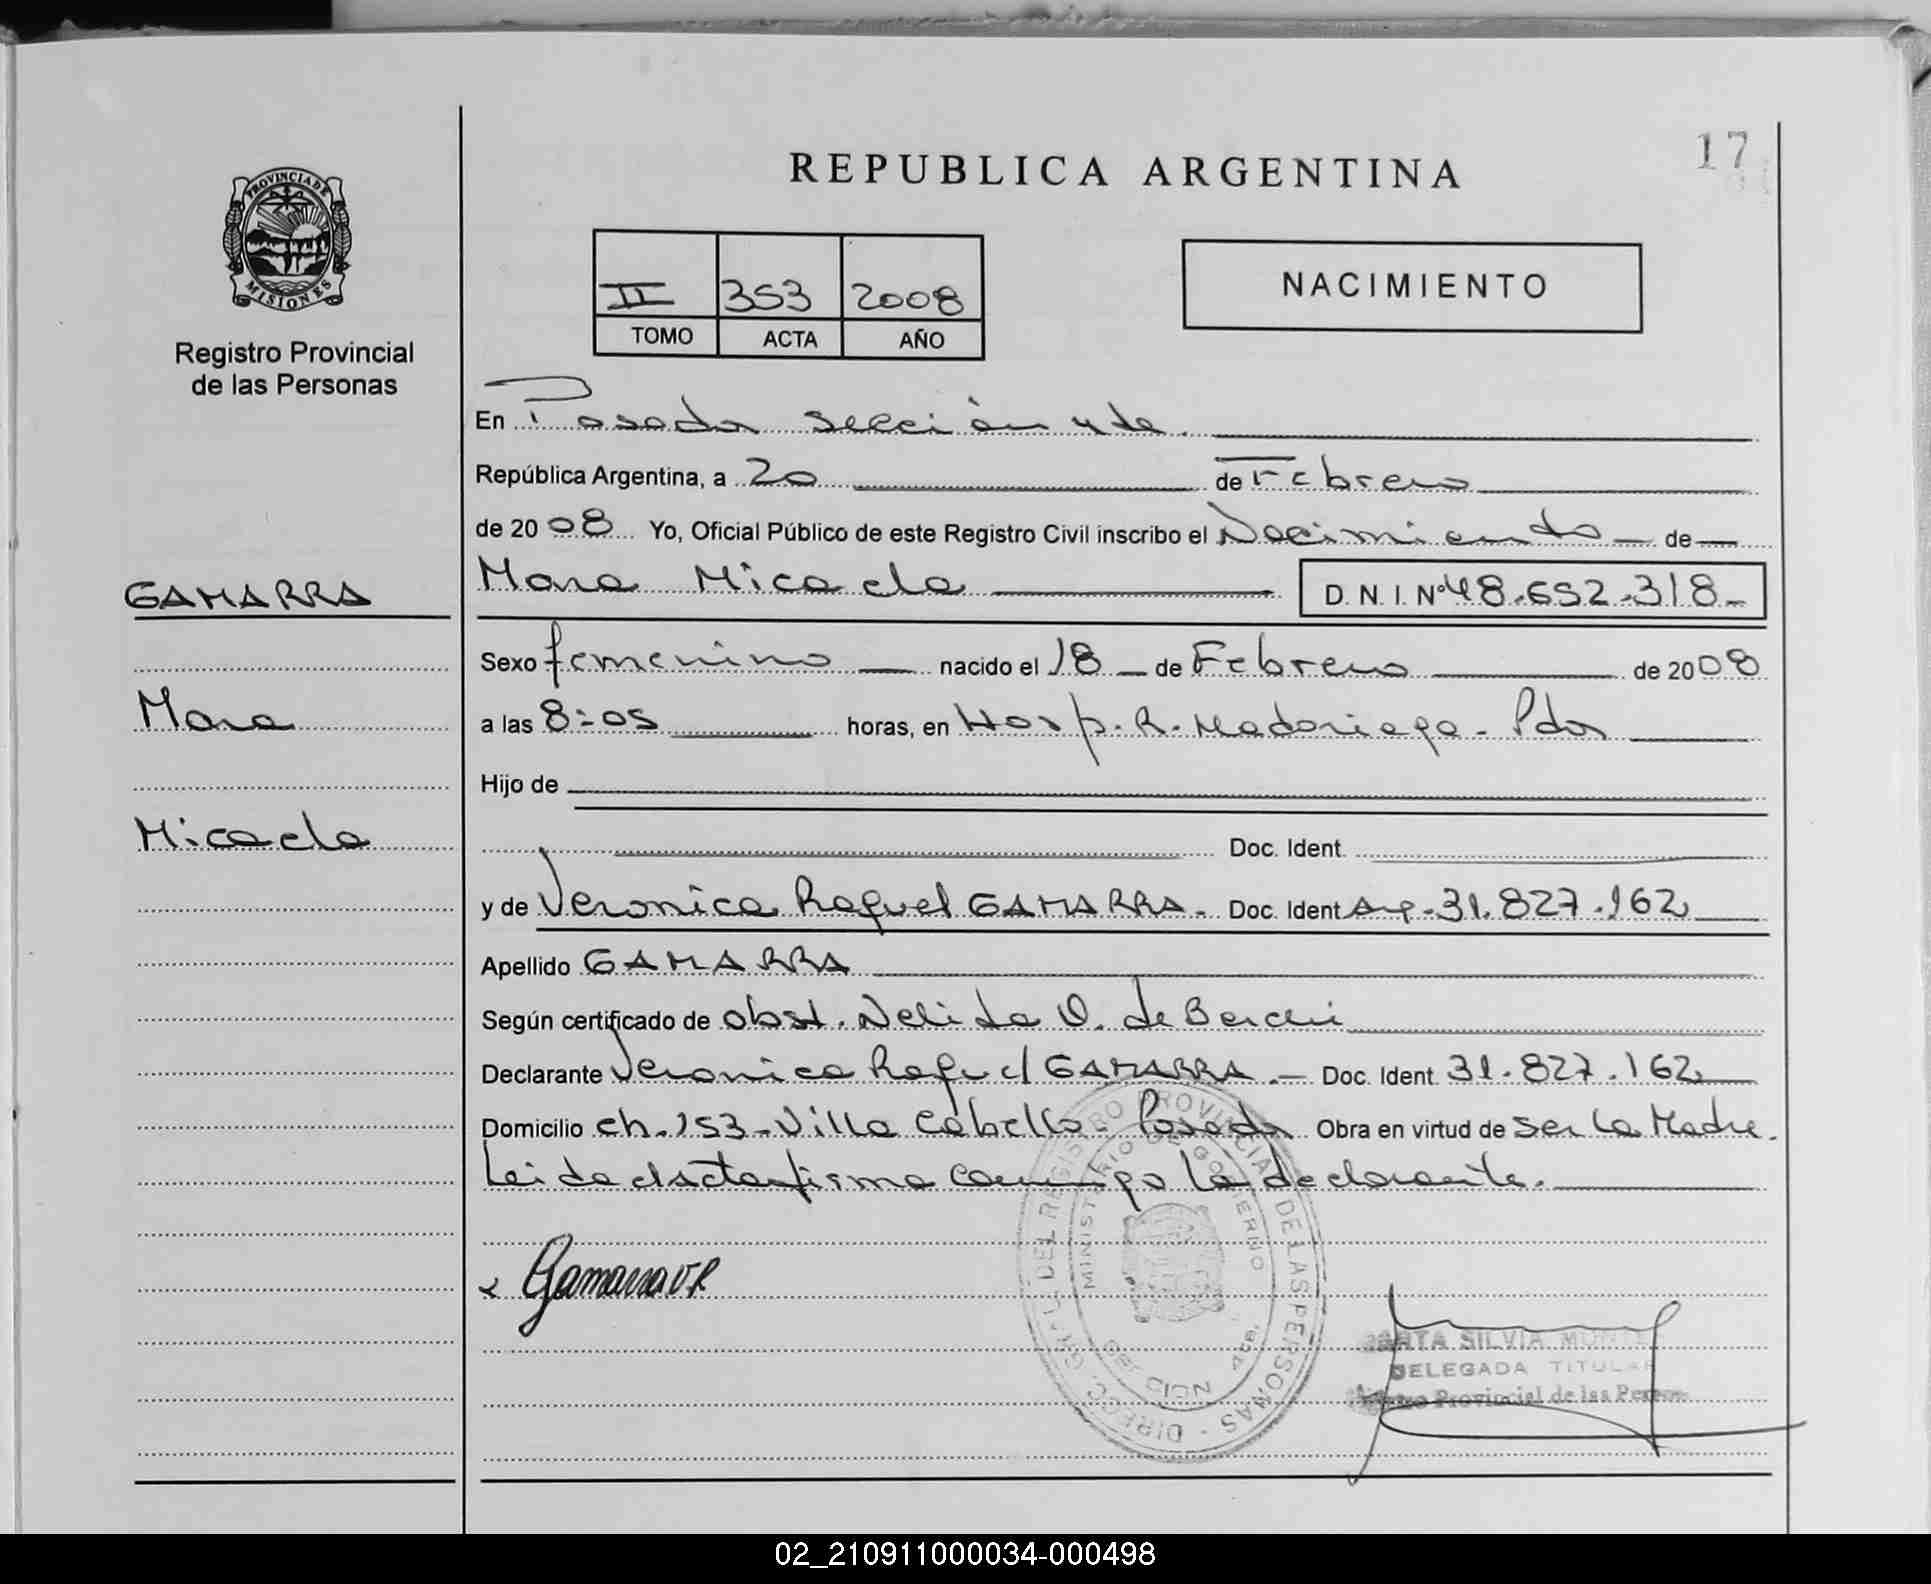 17
REPUBLICA ARGENTINA
PROVINCIA DE
MISIONES
Registro Provincial
de las Personas
II 353 2008
TOMO ACTA AÑO
NACIMIENTO
En Posadas sección 4ta.
República Argentina, a 20 de Febrero
de 2008 Yo, Oficial Público de este Registro Civil inscribo el Nacimiento de
GAMARRA
Mara
Micaela
Mara Micaela D.N.I.Nº 48.652.318
Sexo femenino nacido el 18 de Febrero de 2008
a las 8:05 horas, en Hosp. R. Madariaga - Pdas
Hijo de
Doc. Ident.
y de Veronica Raquel GAMARRA. Doc. Ident Arg. 31.827.162
Apellido GAMARRA
Según certificado de obst. Nelida O. de
Declarante Veronica Raquel GAMARRA.- Doc. Ident. 31.827.162
Domicilio ch. 153 - Villa Cabello - Posadas Obra en virtud de ser la Madre.
Leida el acta firma conmigo la declarante.
Gamarra V R
DIRECC. GRAL. DEL REGISTRO PROVINCIAL DE LAS PERSONAS
MINISTERIO DE GOBIERNO
SILVIA
DELEGADA TITULAR
Provincial de las
02_210911000034-000498